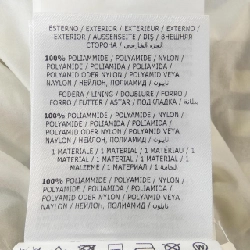 ESTERNO / EXTERIOR / EXTERIEUR / EXTERNO /
EXTERIOR / AUSSENSEITE / DIŞ / ВНЕШНЯЯ
СТОРОНА /
100% POLIAMMIDE / POLYAMIDE / NYLON /
POLYAMIDE / POLIAMIDA / POLIAMIDA /
POLYAMID ODER NYLON / POLYAMID VEYA
NAYLON / НЕЙЛОН, ПОЛИАМИД /
FODERA / LINING / DOUBLURE / FORRO /
FORRO / FUTTER / ASTAR / ПОДКЛАДКА / بطانة
100% POLIAMMIDE / POLYAMIDE / NYLON /
POLYAMIDE / POLIAMIDA / POLIAMIDA /
POLYAMID ODER NYLON / POLYAMID VEYA
NAYLON / НЕЙЛОН, ПОЛИАМИД /
1 MATERIALE / 1 MATERIAL / 1 MATERIAU / 1
MATERIAL / 1 MATERIAL / 1 MATERIAL / 1
MALZEME / 1 МАТЕРИАЛ / 1
100% POLIAMMIDE / POLYAMIDE / NYLON /
POLYAMIDE / POLIAMIDA / POLIAMIDA /
POLYAMID ODER NYLON / POLYAMID VEYA
NAYLON / НЕЙЛОН, ПОЛИАМИД /